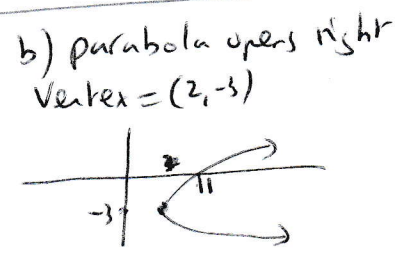 b) parabola opens right
Vertex = (2, -3)
11
-3